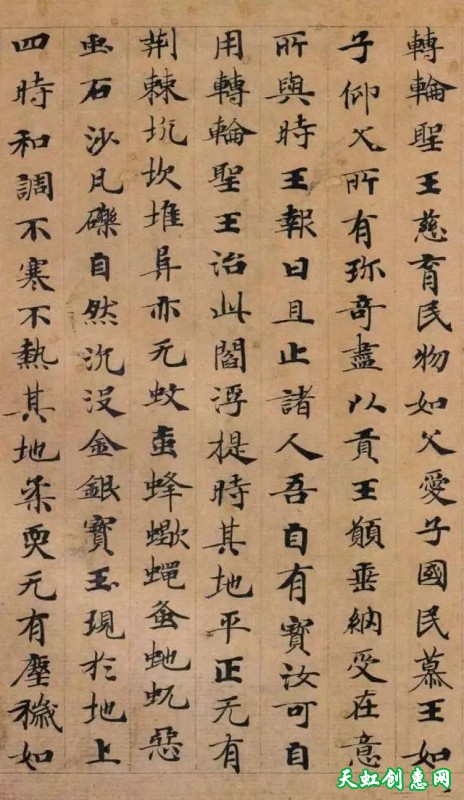 轉輪聖王慈育民物如父愛子國民慕王如
子仰父所有珎奇盡以貢王願垂納受在意
所與時王報曰且止諸人吾自有寶汝可自
用轉輪聖王治此閻浮提時其地平正无有
荆棘坑坎堆阜亦无蚊䖟蜂蝎蠅蚤虵蚖惡
虫石沙凡礫自然沉没金銀寶玉現於地上
四時和調不寒不熱其地柔耎无有塵穢如
天虹创惠网